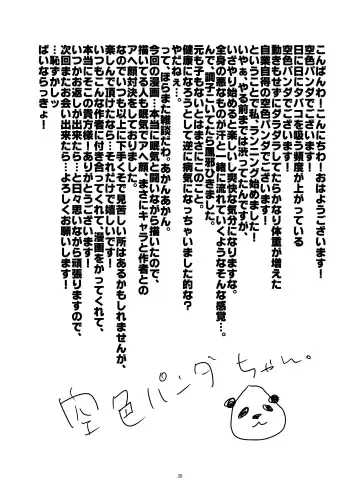 こんばんわー！こんにちわー！おはようございます！
空色パンダでございます！
日に日にタバコを吸う頻度が上がっている
空色パンダでございます！
動きもせずにダラダラしてたらかなり体重が増えた
自業自得の空色パンダでございます！
ということでランニング始めました！
いやぁ、やる前までは渋ってたんですが、
いざやり始めると楽しいし爽快な気分になりますな。
全身の悪なものが汗と一緒に流れていくようなそんな感覚…。
んで、調子こいてたら風邪ひきました。
元も子もないとはまさにこのこと。
健康になろうとして逆に病気になっちゃいました的な？
やだねぇ…。
って、ほらまた雑談だわ。あかんあかん。
今回の漫画…本当に眠気と闘いながら描いたので、
描いてる人も眠気でアへ顔、まさにキャラと作者との
アヘ顔対決をしておりました。
なのでいつも以上に下手くそで見苦しい所はあるかもしれませんが、
楽しんで頂けたなら…それだけで嬉しいです！
いつもこんな作者に付き合ってくれて、漫画をかってくれて、
本当にそこの貴方様！ありがとうございます！
いつかお返しが出来たら…と日々思いながら頑張りますので、
次回またお会い出来たら…よろしくお願いします！
…恥ずかしッ
ばいならっきょ！
空色パンダちゃん。